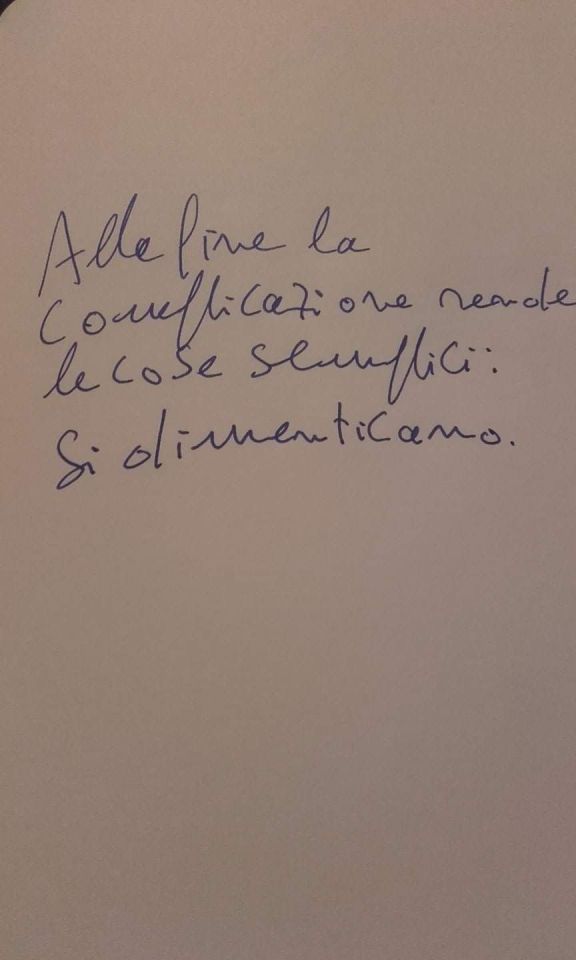 Alla fine la
complicazione rende
le cose semplici:
Si dimenticano.